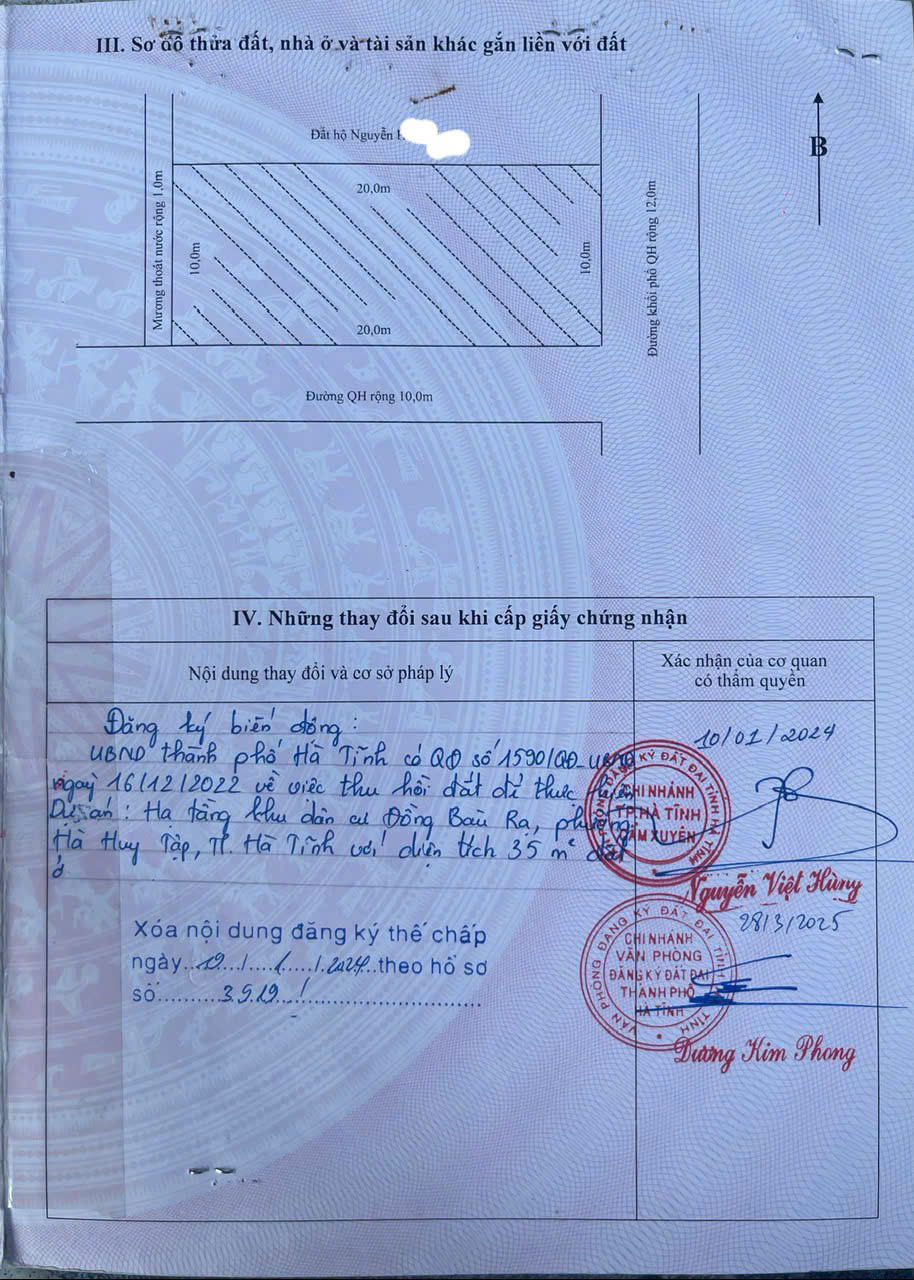 III. Sơ đồ thửa đất, nhà ở và tài sản khác gắn liền với đất
Đất hộ Nguyễn
B
20,0m
Mương thoát nước rộng 1,0m
10,0m
10,0m
Đường khối phố QH rộng 12,0m
20,0m
Đường QH rộng 10,0m
IV. Những thay đổi sau khi cấp giấy chứng nhận
Nội dung thay đổi và cơ sở pháp lý
Xác nhận của cơ quan
có thẩm quyền
Đăng ký biến động:
UBND thành phố Hà Tĩnh có QĐ số 1590/QĐ-UBND
ngày 16/12/2022 về việc thu hồi đất để thực hiện
Dự án: Hạ tầng khu dân cư Đồng Bàu Rạ, phường
Hà Huy Tập, TP. Hà Tĩnh với diện tích 35 m² đất
ở
10/01/2024
VĂN PHÒNG ĐĂNG KÝ ĐẤT ĐAI TỈNH HÀ TĨNH
CHI NHÁNH
TP.HÀ TĨNH
CẨM XUYÊN
Nguyễn Việt Hùng
Xóa nội dung đăng ký thế chấp
ngày 19 / 1 / 2024 theo hồ sơ
số 3919 /
28/3/2025
VĂN PHÒNG ĐĂNG KÝ ĐẤT ĐAI TỈNH
CHI NHÁNH
VĂN PHÒNG
ĐĂNG KÝ ĐẤT ĐAI
THÀNH PHỐ
HÀ TĨNH
Dương Kim Phong